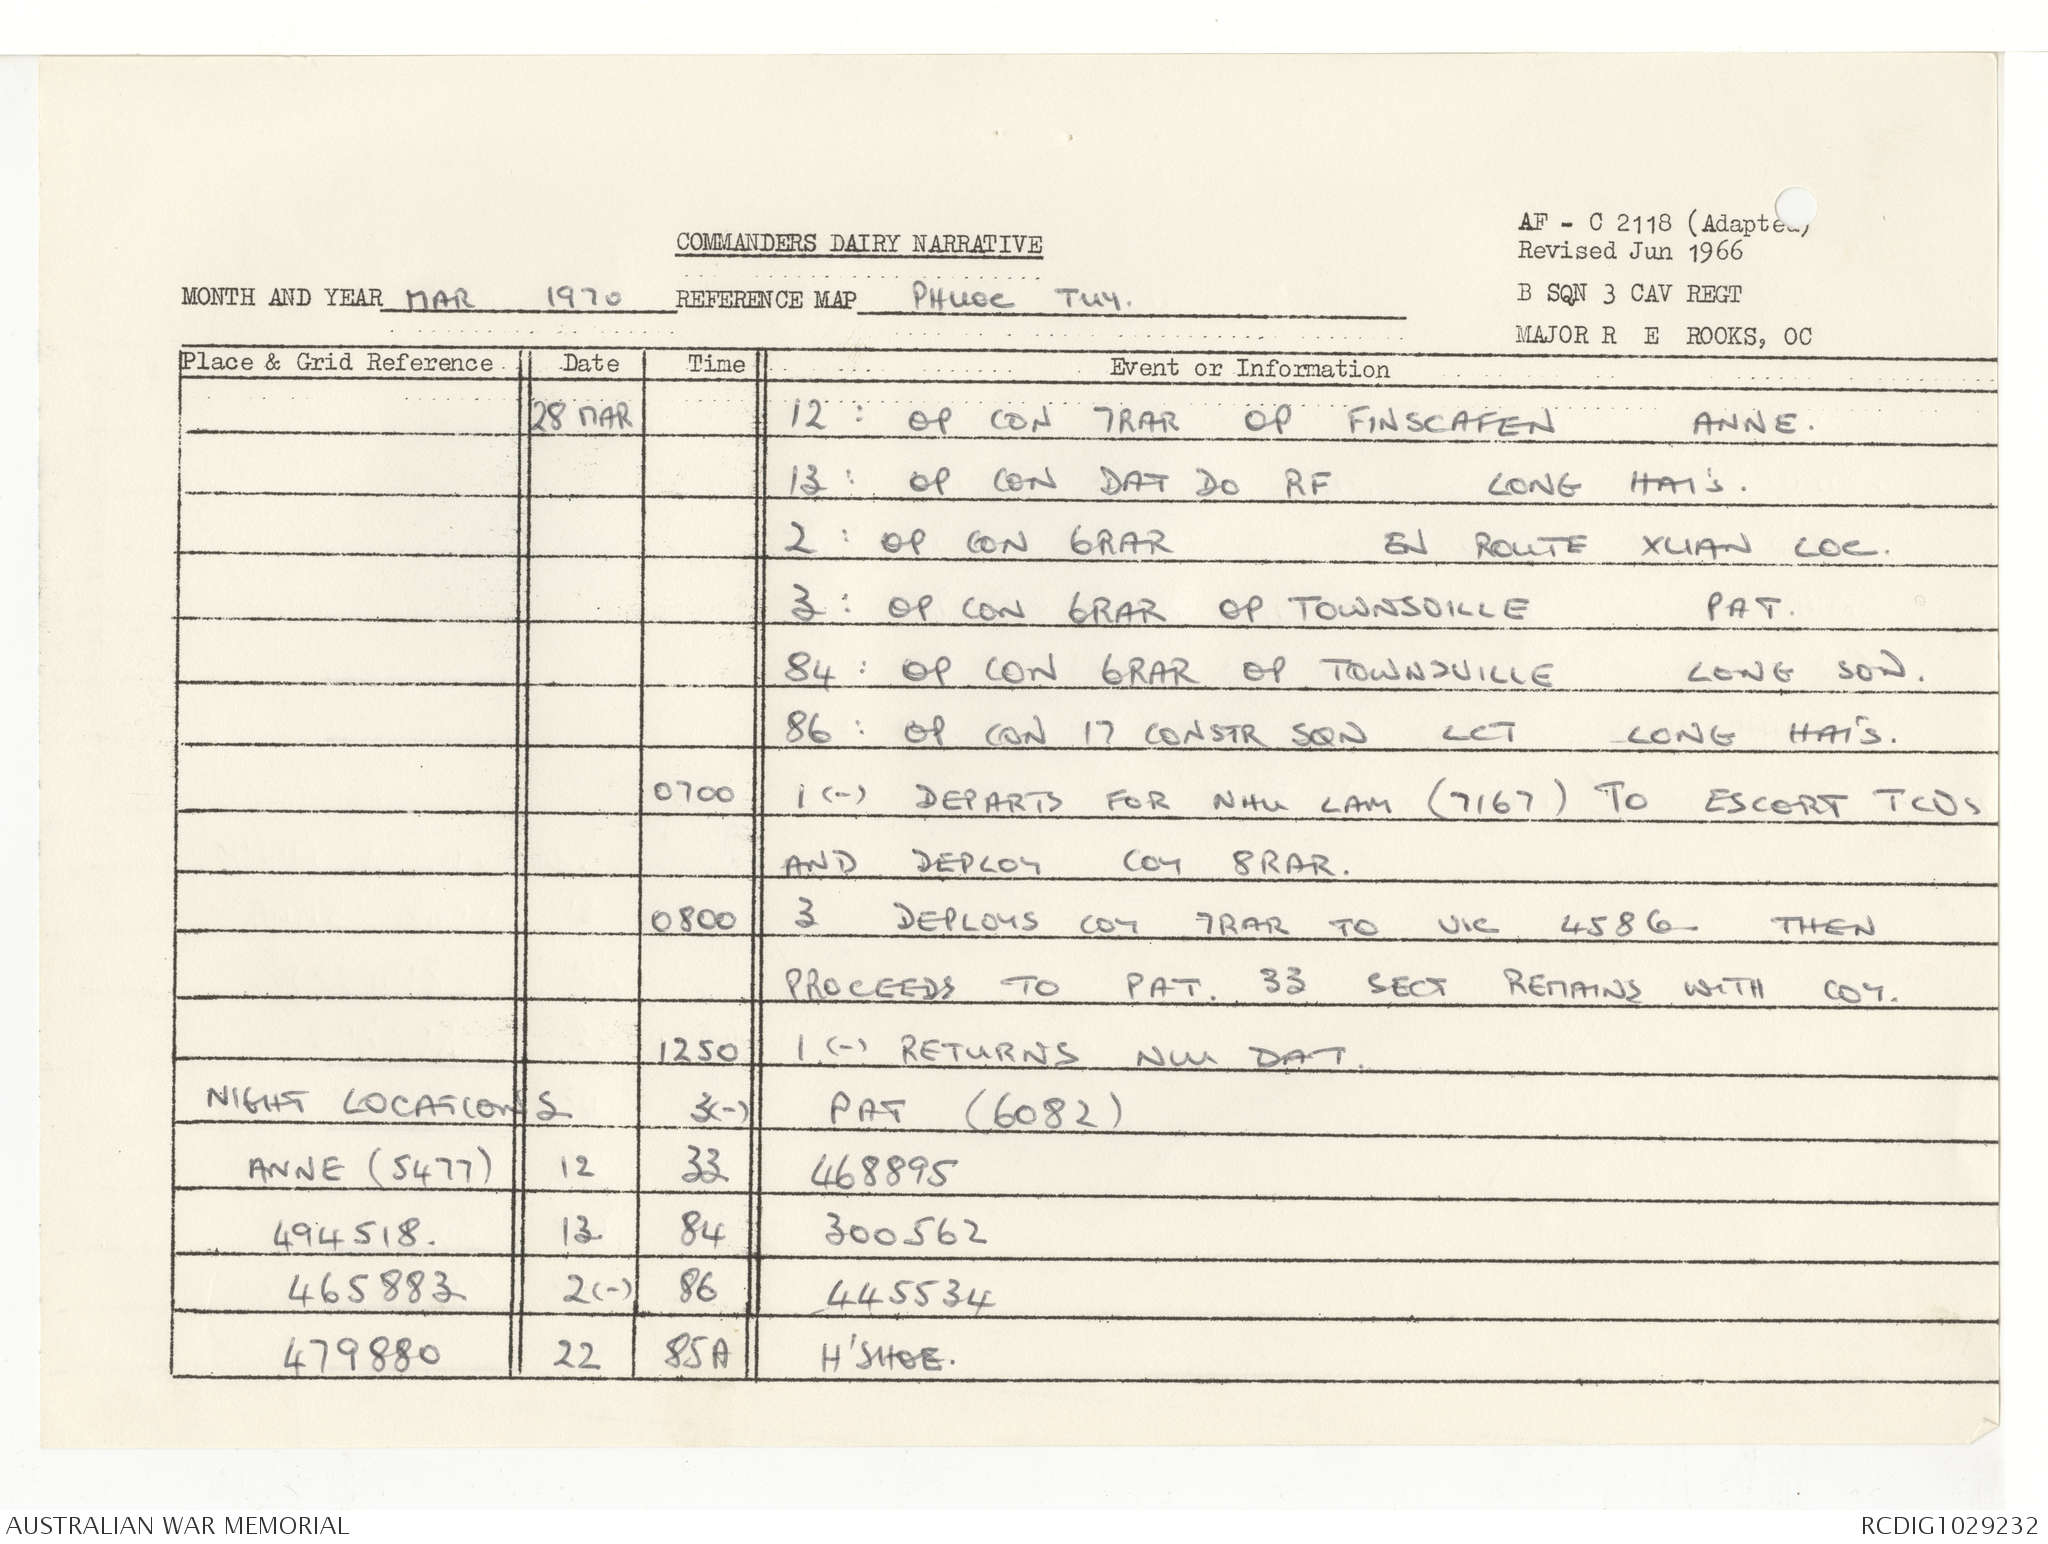 AF - C 2118 (Adapted)
COMMANDERS DAIRY NARRATIVE
Revised Jun 1966
MONTH AND YEAR MAR 1970 REFERENCE MAP PHUOC TUY.
B SQN 3 CAV REGT
MAJOR R E ROOKS, OC
Place & Grid Reference Date Time Event or Information
28 MAR 12: OP CON 7RAR OP FINSCAFEN ANNE.
13: OP CON DAT DO RF LONG HAI'S.
2: OP CON 6RAR EN ROUTE XUAN LOC.
3: OP CON 6RAR OP TOWNSVILLE PAT.
84: OP CON 6RAR OP TOWNSVILLE LONG SON.
86: OP CON 17 CONSTR SQN LCT LONG HAI'S.
0700 1(-) DEPARTS FOR NHU LAM (7167) TO ESCORT TCDS
AND DEPLOY COY 8RAR.
0800 3 DEPLOYS COY 7RAR TO VIC 4586 THEN
PROCEEDS TO PAT. 33 SECT REMAINS WITH COY.
1250 1(-) RETURNS NUI DAT.
NIGHT LOCATIONS 3(-) PAT (6082)
ANNE (5477) 12 33 468895
494518. 13 84 300562
465883 2(-) 86 445534
479880 22 85A H'SHOE.
AUSTRALIAN WAR MEMORIAL RCDIG1029232